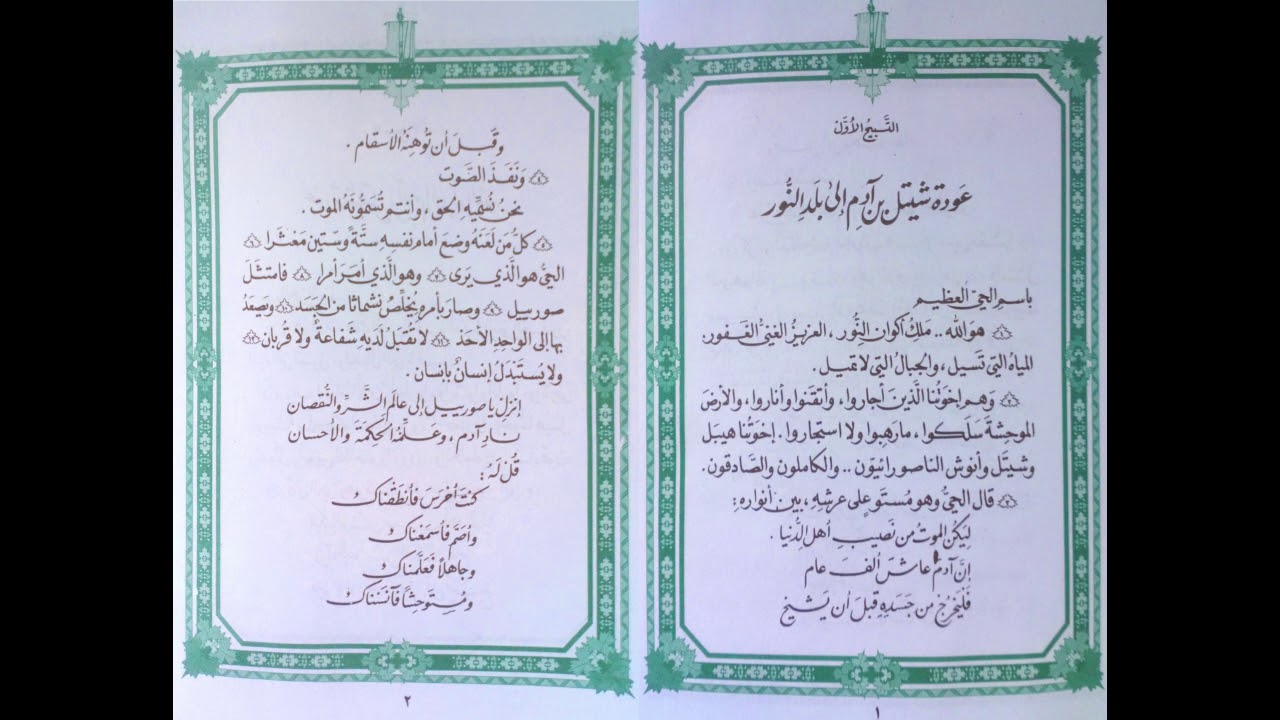 التَّسبيحُ الأوَّل
عَودة شيتل بن آدم إلى بلَدِ النُّور
باسمِ الحيِّ العظيم
﴿١﴾ هوَ الله .. مَلِكُ أكوانِ النُّور ، العزيزُ الغنيُّ الغَفور.
المياهُ التي تَسيل ، والجبالُ التي لا تميل .
﴿٢﴾ وَهم إخوَتُنا الَّذينَ أجاروا ، وأتقَنوا وأناروا ، والأرضَ
الموحِشةَ سَلَكوا ، مارَهِبوا ولا استجاروا . إخوَتُنا هيبل
وشيتَل وأنوش الناصورائيّون .. والكاملون والصَّادقون.
﴿٣﴾ قال الحيُّ وهو مُستَوٍ على عرشِهِ ، بين أنوارِهِ :
لِيَكُن الموتُ من نَصيبِ أهلِ الدُّنيا .
إنَّ آدمَ عاشَ ألفَ عام
فَليَخرُجْ من جَسَدِهِ قبلَ أن يَشيخ
١
وقَبلَ أن تُوهِنَهُ الأسقام .
﴿٤﴾ ونَفَذَ الصَّوت
نحنُ نُسَمِّيهِ الحق ، وأنتم تُسَمُّونَهُ الموت .
﴿٥﴾ كلُّ مَن لَعَنَهُ وضَعَ أمامَ نفسِهِ ستَّةً وستّين مَعْثَرا ﴿٦﴾
الحيُّ هوَ الَّذي يَرى ﴿٧﴾ وهوَ الَّذي أمَرَ أمرا ﴿٨﴾ فامتثَلَ
صورييل ﴿٩﴾ وصارَ بأمرِهِ يُخلِّصُ نشماثا من الجَسَد ﴿١٠﴾ ويَصعَدُ
بها إلى الواحدِ الأحَد ﴿١١﴾ لا تُقبَلُ لَدَيهِ شَفاعةٌ ولا قُربان ﴿١٢﴾
ولا يُستَبدَلُ إنسانٌ بإنسان .
إنزِل يا صورييل إلى عالَمِ الشَّرِّ والنُّقصان
نادِ آدم ، وعَلِّمهُ الحِكمةَ والأحسان
قُل لَهُ :
كنتَ أخرَسَ فأنطَقناك
وأصَمَّ فأسمَعْناك
وجاهلاً فعَلَّمناك
ومُستَوحِشاً فآنَسناك
٢